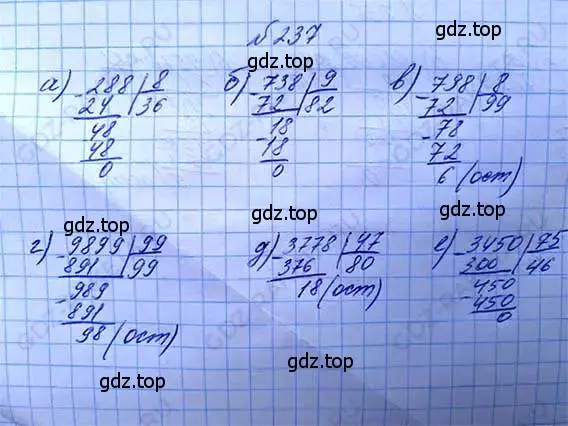 № 237
gdz.top
gdz.top
gdz.top
а) 288 | 8 б) 738 | 9 в) 798 | 8
- 24 | 36 - 72 | 82 - 72 | 99
48 - 18 - 78
48 18 72
0 0 6 (ост)
gdz.top
gdz.top
gdz.top
г) 9899 | 99 д) 3778 | 47 е) 3450 | 75
- 891 | 99 - 376 | 80 - 300 | 46
- 989 18 (ост) - 450
891 450
98 (ост) 0
gdz.top
gdz.top
gdz.top